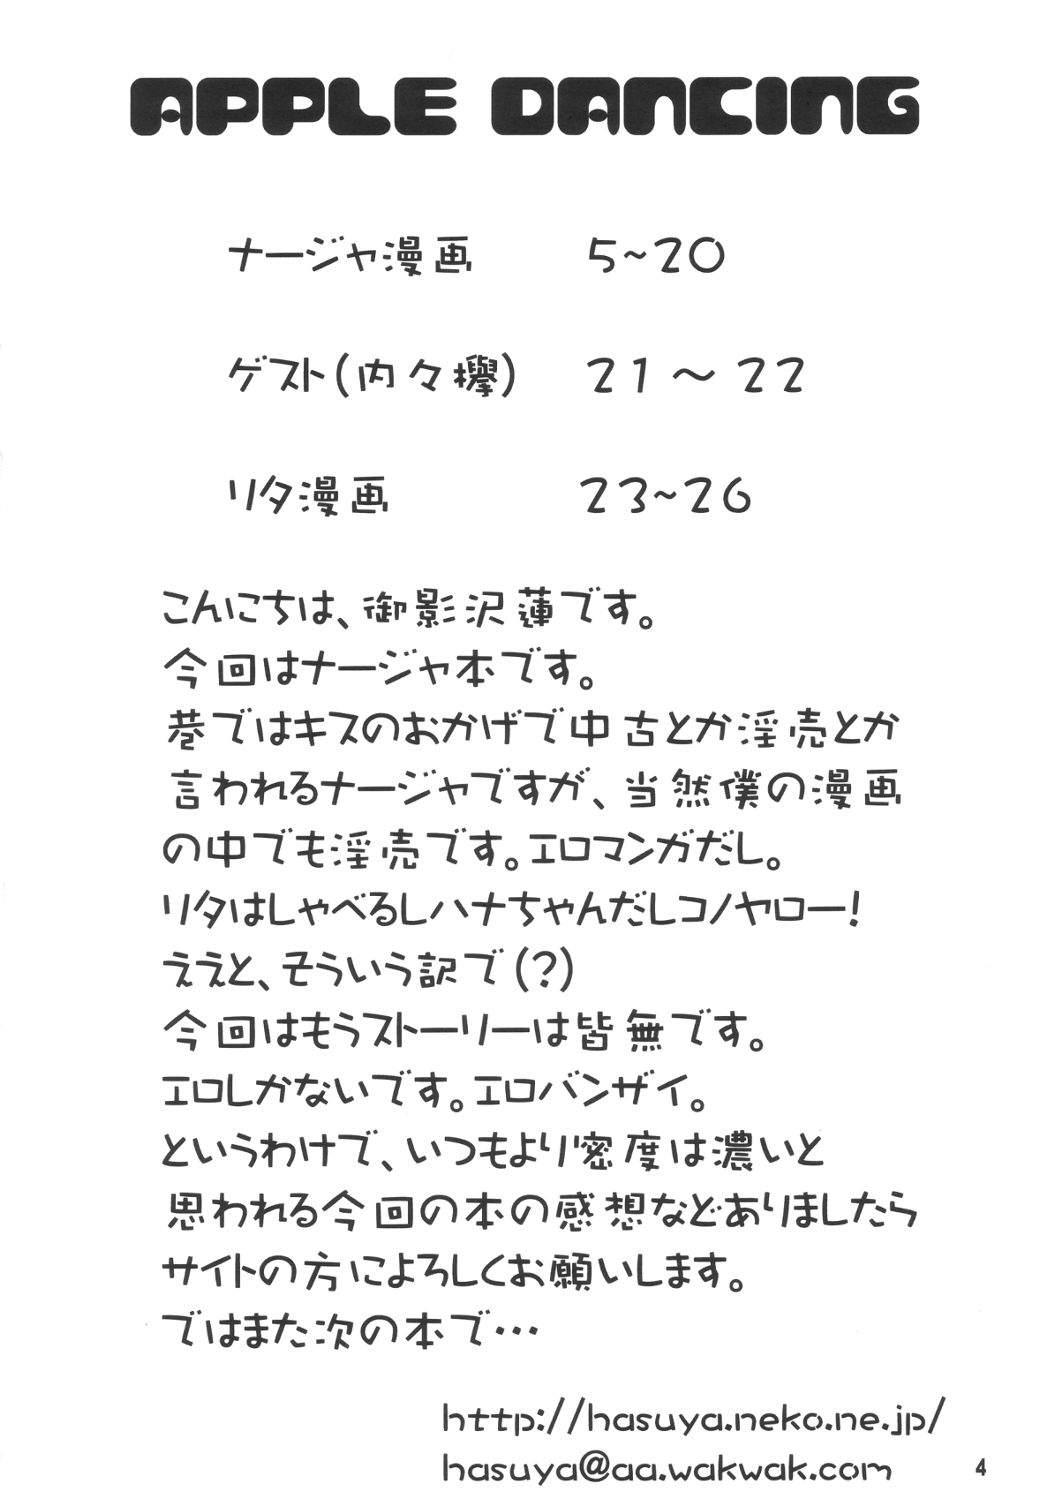 APPLE DANCING
ナージャ漫画 5~20
ゲスト(内々欅) 21～22
リタ漫画 23~26
こんにちは、御影沢蓮です。
今回はナージャ本です。
巷ではキスのおかげで中古とか淫売とか
言われるナージャですが、当然僕の漫画
の中でも淫売です。エロマンガだし。
リタはしゃべるしハナちゃんだしコノヤロー!
ええと、そういう訳で(?)
今回はもうストーリーは皆無です。
エロしかないです。エロバンザイ。
というわけで、いつもより密度は濃いと
思われる今回の本の感想などありましたら
サイトの方によろしくお願いします。
ではまた次の本で…
http://hasuya.neko.ne.jp/
hasuya@aa.wakwak.com
4